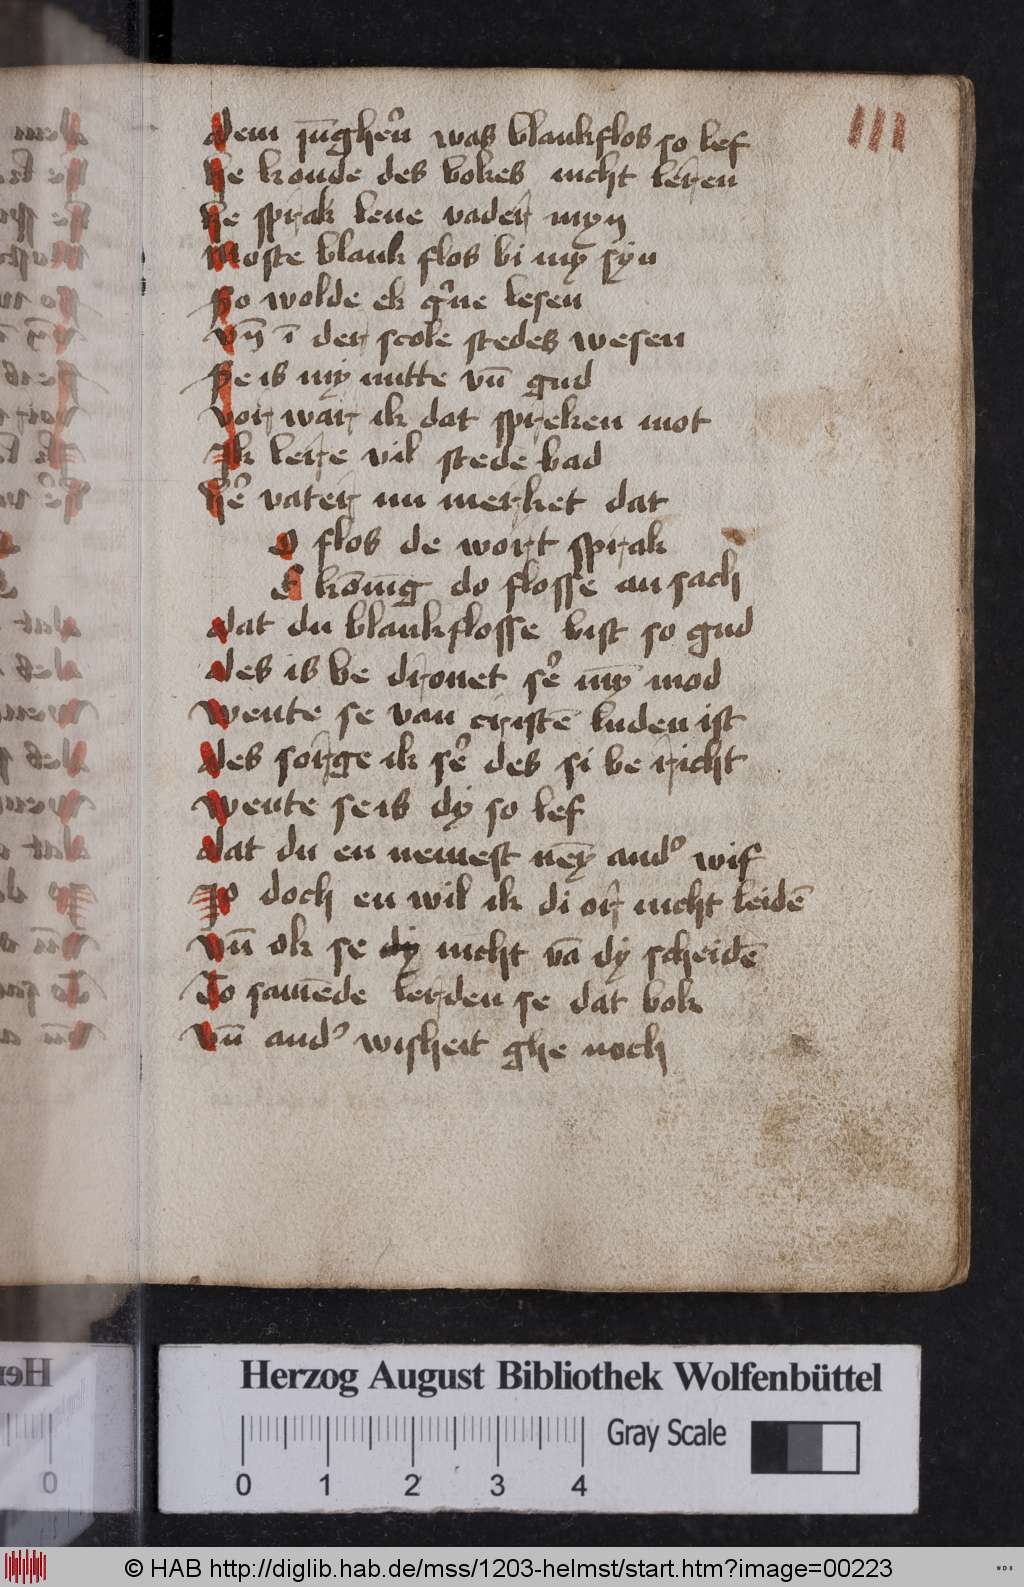 III
dem iu̅ghe͛n was blankflos so lef
he konde des bokes nicht leren
he sprak leue vader myn
Moste blank flos bi my syn
So wolde ek g͛ne lesen
vn̅ i̅ der scole stedes wesen
Se is my nutte vn̅ gud
vor war ik dat spreken mot
Ik lere vil stede bad
he͛ vater nu merket dat
O flos de wort sprak
E ko̅nig do flosse an sach
dat du blankflosse bist so gud
des is be dronet se͛ my̅ mod
wente se van criste̅ luden ist
des sorge ik se͛ des si be richt
wente se is dy so lef
dat du en nemest ney̅ and͛ wif
Jo doch en wil ik di or̅ nicht leide̅
vn̅ ok se dy nicht va̅ dy scheide̅
To same̅de lerden se dat bok
vn̅ and͛ wisheit ghe noch
Herzog August Bibliothek Wolfenbüttel
0 1 2 3 4
Gray Scale
© HAB http://diglib.hab.de/mss/1203-helmst/start.htm?image=00223